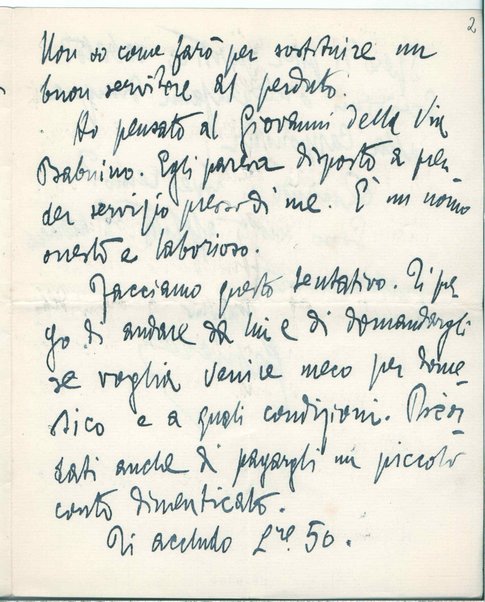 2
Non so come farò per sostituire un
buon servitore al perduto.
Ho pensato al Giovanni della Via
Babuino. Egli pareva disposto a pren-
der servizio presso di me. È un uomo
onesto e laborioso.
Facciamo questo tentativo. Ti pre
go di andare da lui e di domandargli
se voglia venire meco per dome-
stico e a quali condizioni. Ricor-
dati anche di pagargli un piccolo
conto dimenticato.
Ti accludo Lre. 50.